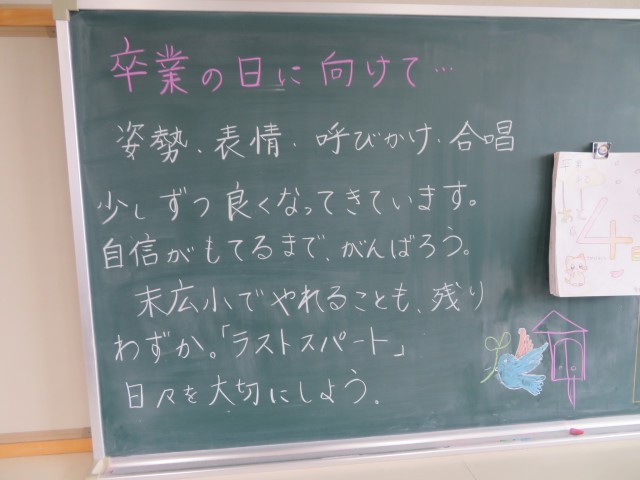 卒業の日に向けて…
姿勢、表情、呼びかけ、合唱
少しずつ良くなってきています。
自信がもてるまで、がんばろう。
末広小でやれることも、残り
わずか。「ラストスパート」
日々を大切にしよう。
卒業
あと
4